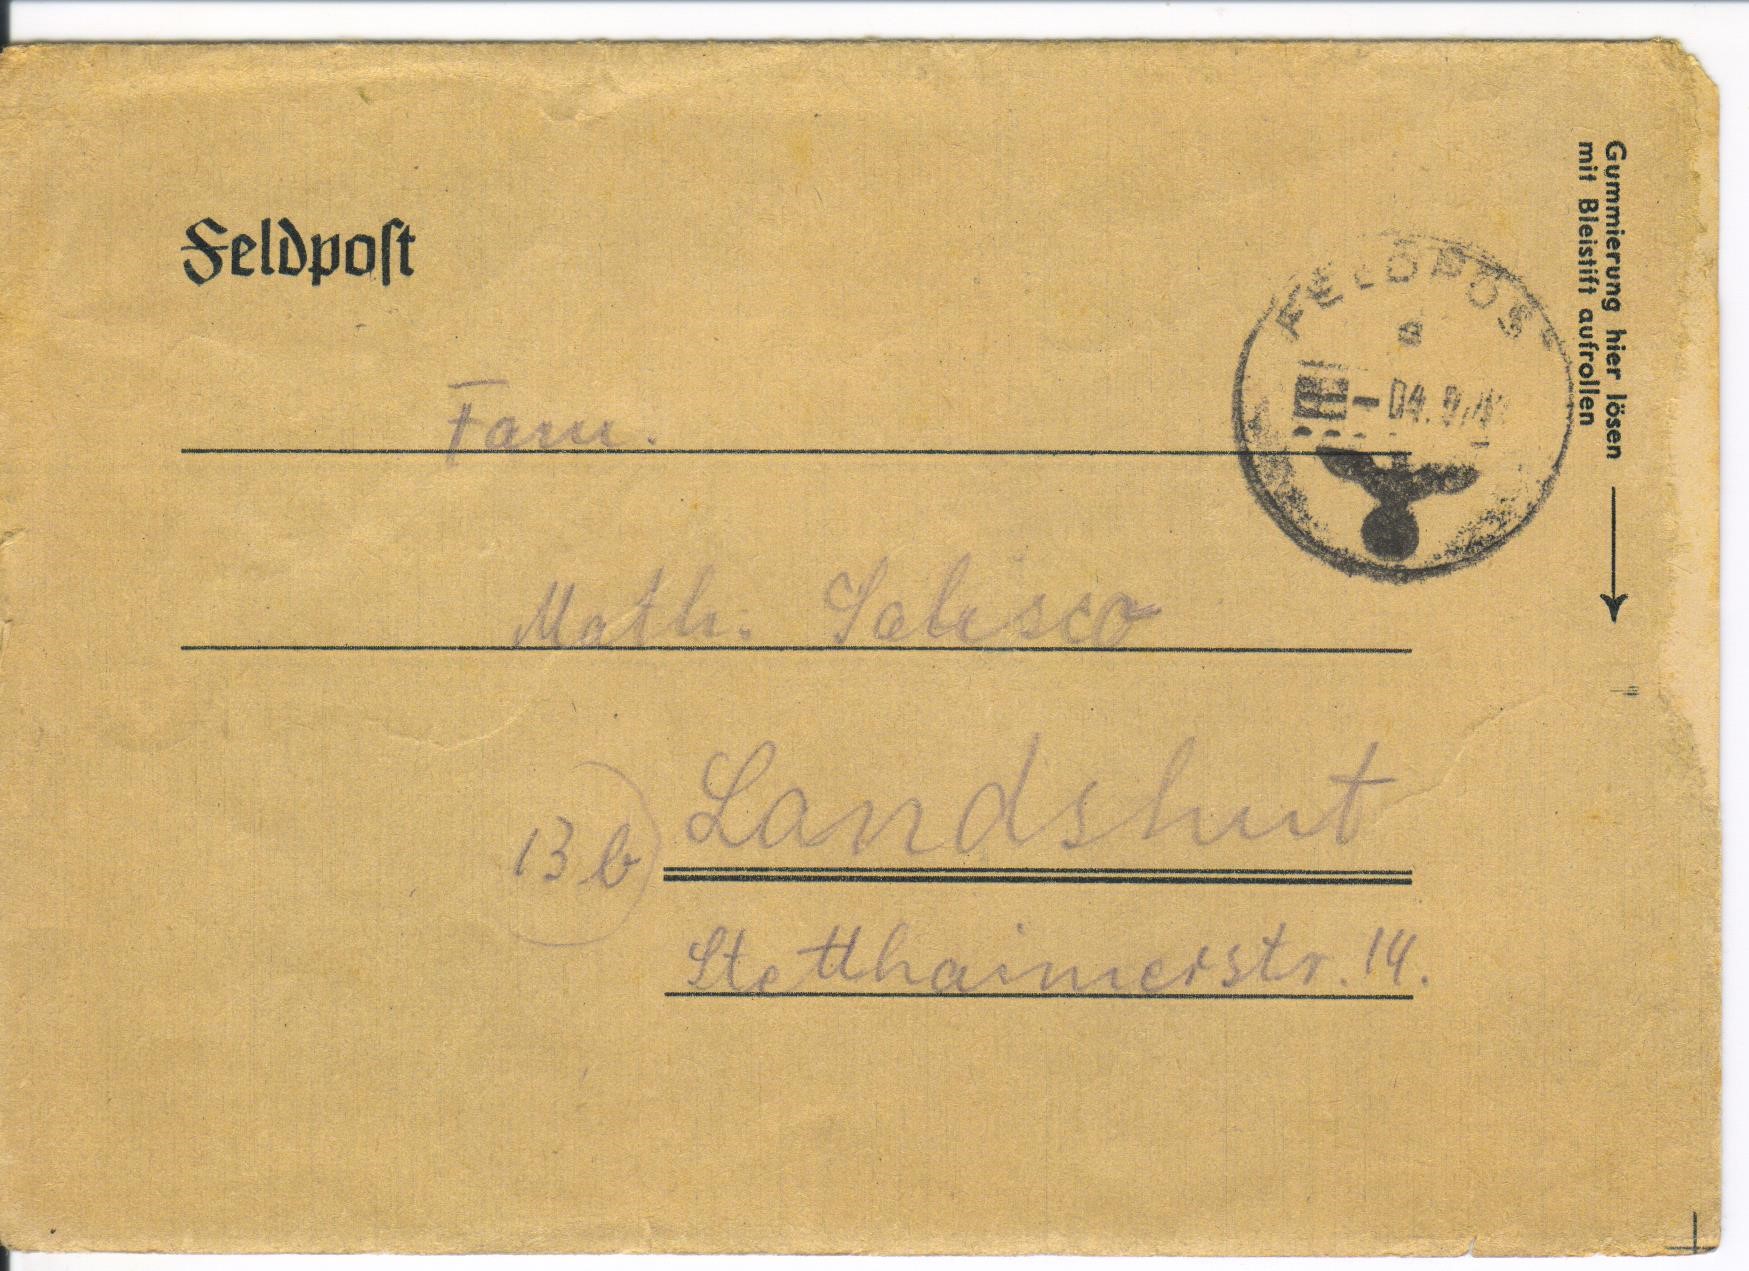 Feldpost
FELDPOST
a
Gummierung hier lösen
mit Bleistift aufrollen
Fam.
Math. Sabisco
13 b Landshut
Stetthaimerstr. 14.